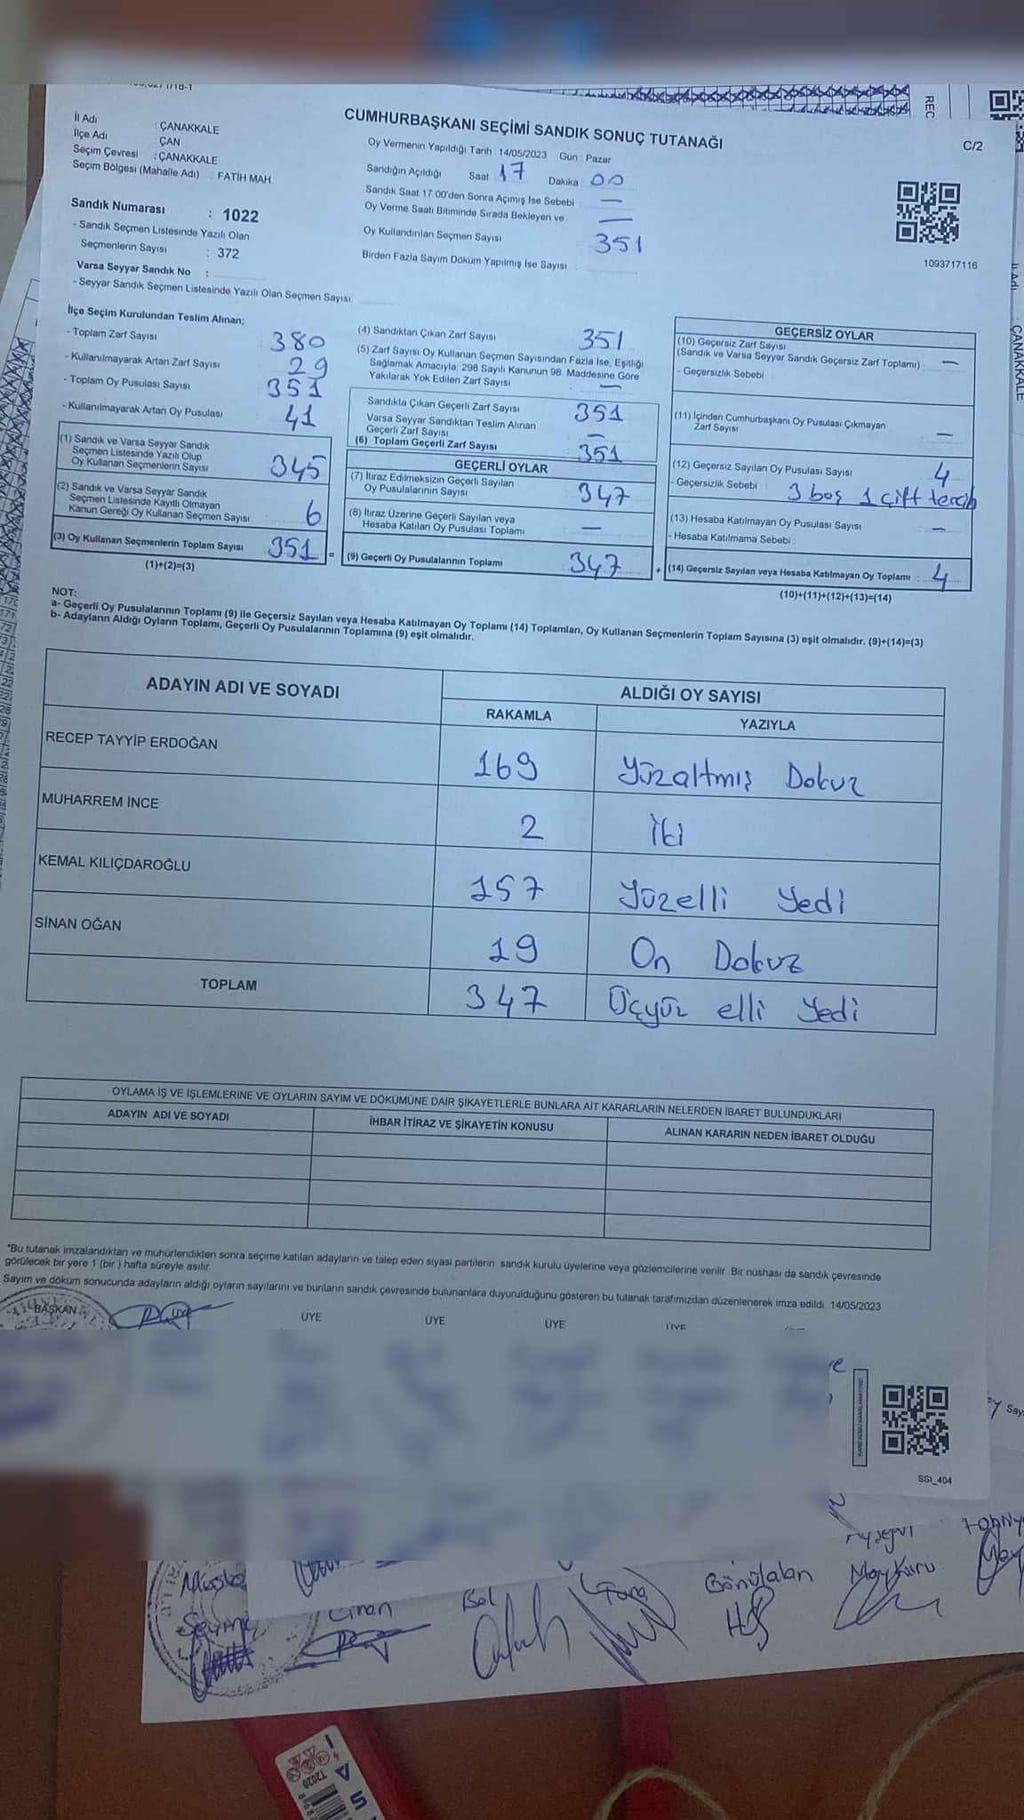 CUMHURBAŞKANI SEÇİMİ SANDIK SONUÇ TUTANAĞI
C/2
İl Adı : ÇANAKKALE
İlçe Adı : ÇAN
Seçim Çevresi : ÇANAKKALE
Seçim Bölgesi (Mahalle Adı) : FATİH MAH
Sandık Numarası : 1022
- Sandık Seçmen Listesinde Yazılı Olan
Seçmenlerin Sayısı : 372
Varsa Seyyar Sandık No :
- Seyyar Sandık Seçmen Listesinde Yazılı Olan Seçmen Sayısı
Oy Vermenin Yapıldığı Tarih : 14/05/2023 Gün : Pazar
Sandığın Açıldığı Saat 17 Dakika 00
Sandık Saat 17:00'den Sonra Açımış İse Sebebi —
Oy Verme Saati Bitiminde Sırada Bekleyen ve —
Oy Kullandırılan Seçmen Sayısı 351
Birden Fazla Sayım Döküm Yapılmış İse Sayısı :
1093717116
İlçe Seçim Kurulundan Teslim Alınan;
- Toplam Zarf Sayısı 380
- Kullanılmayarak Artan Zarf Sayısı 29
- Toplam Oy Pusulası Sayısı 351
- Kullanılmayarak Artan Oy Pusulası 41
(1) Sandık ve Varsa Seyyar Sandık
Seçmen Listesinde Yazılı Olup
Oy Kullanan Seçmenlerin Sayısı 345
(2) Sandık ve Varsa Seyyar Sandık
Seçmen Listesinde Kayıtlı Olmayan
Kanun Gereği Oy Kullanan Seçmen Sayısı 6
(3) Oy Kullanan Seçmenlerin Toplam Sayısı 351 =
(1)+(2)=(3)
(4) Sandıktan Çıkan Zarf Sayısı 351
(5) Zarf Sayısı Oy Kullanan Seçmen Sayısından Fazla İse, Eşitliği
Sağlamak Amacıyla, 298 Sayılı Kanunun 98. Maddesine Göre
Yakılarak Yok Edilen Zarf Sayısı —
Sandıkta Çıkan Geçerli Zarf Sayısı 351
Varsa Seyyar Sandıktan Teslim Alınan
Geçerli Zarf Sayısı —
(6) Toplam Geçerli Zarf Sayısı 351
GEÇERLİ OYLAR
(7) İtiraz Edilmeksizin Geçerli Sayılan
Oy Pusulalarının Sayısı 347
(8) İtiraz Üzerine Geçerli Sayılan veya
Hesaba Katılan Oy Pusulası Toplamı —
(9) Geçerli Oy Pusulalarının Toplamı 347 +
GEÇERSİZ OYLAR
(10) Geçersiz Zarf Sayısı
(Sandık ve Varsa Seyyar Sandık Geçersiz Zarf Toplamı) —
- Geçersizlik Sebebi :
(11) İçinden Cumhurbaşkanı Oy Pusulası Çıkmayan
Zarf Sayısı —
(12) Geçersiz Sayılan Oy Pusulası Sayısı 4
- Geçersizlik Sebebi : 3 boş 1 çift tercih
(13) Hesaba Katılmayan Oy Pusulası Sayısı —
- Hesaba Katılmama Sebebi :
(14) Geçersiz Sayılan veya Hesaba Katılmayan Oy Toplamı : 4
(10)+(11)+(12)+(13)=(14)
NOT:
a- Geçerli Oy Pusulalarının Toplamı (9) ile Geçersiz Sayılan veya Hesaba Katılmayan Oy Toplamı (14) Toplamları, Oy Kullanan Seçmenlerin Toplam Sayısına (3) eşit olmalıdır. (9)+(14)=(3)
b- Adayların Aldığı Oyların Toplamı, Geçerli Oy Pusulalarının Toplamına (9) eşit olmalıdır.
ADAYIN ADI VE SOYADI
ALDIĞI OY SAYISI
RAKAMLA YAZIYLA
RECEP TAYYİP ERDOĞAN 169 Yüzaltmış Dokuz
MUHARREM İNCE 2 İki
KEMAL KILIÇDAROĞLU 157 Yüzelli Yedi
SİNAN OĞAN 19 On Dokuz
TOPLAM 347 Üçyüz elli Yedi
OYLAMA İŞ VE İŞLEMLERİNE VE OYLARIN SAYIM VE DÖKÜMÜNE DAİR ŞİKAYETLERLE BUNLARA AİT KARARLARIN NELERDEN İBARET BULUNDUKLARI
ADAYIN ADI VE SOYADI İHBAR İTİRAZ VE ŞİKAYETİN KONUSU ALINAN KARARIN NEDEN İBARET OLDUĞU
*Bu tutanak imzalandıktan ve mühürlendikten sonra seçime katılan adayların ve talep eden siyasi partilerin sandık kurulu üyelerine veya gözlemcilerine verilir. Bir nüshası da sandık çevresinde
görülecek bir yere 1 (bir) hafta süreyle asılır.
Sayım ve döküm sonucunda adayların aldığı oyların sayılarını ve bunların sandık çevresinde bulunanlara duyurulduğunu gösteren bu tutanak tarafımızdan düzenlenerek imza edildi. 14/05/2023
BAŞKAN ÜYE ÜYE ÜYE ÜYE ÜYE
SSI_404
Gönülalan
REC
ÇANAKKALE
T2020